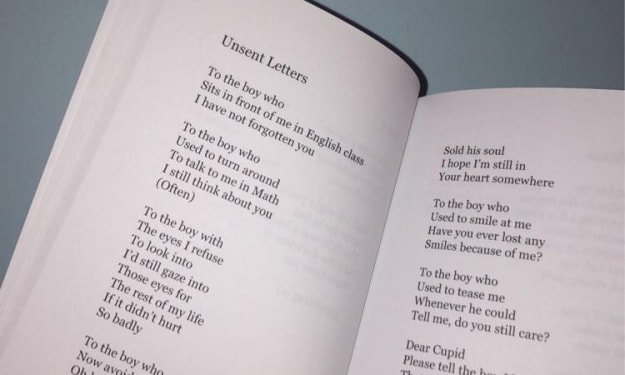 Unsent Letters
To the boy who
Sits in front of me in English class
I have not forgotten you
To the boy who
Used to turn around
To talk to me in Math
I still think about you
(Often)
To the boy with
The eyes I refuse
To look into
I'd still gaze into
Those eyes for
The rest of my life
If it didn't hurt
So badly
To the boy who
Now
Sold his soul
I hope I'm still in
Your heart somewhere
To the boy who
Used to smile at me
Have you ever lost any
Smiles because of me?
To the boy who
Used to tease me
Whenever he could
Tell me, do you still care?
Dear Cupid
Please tell the